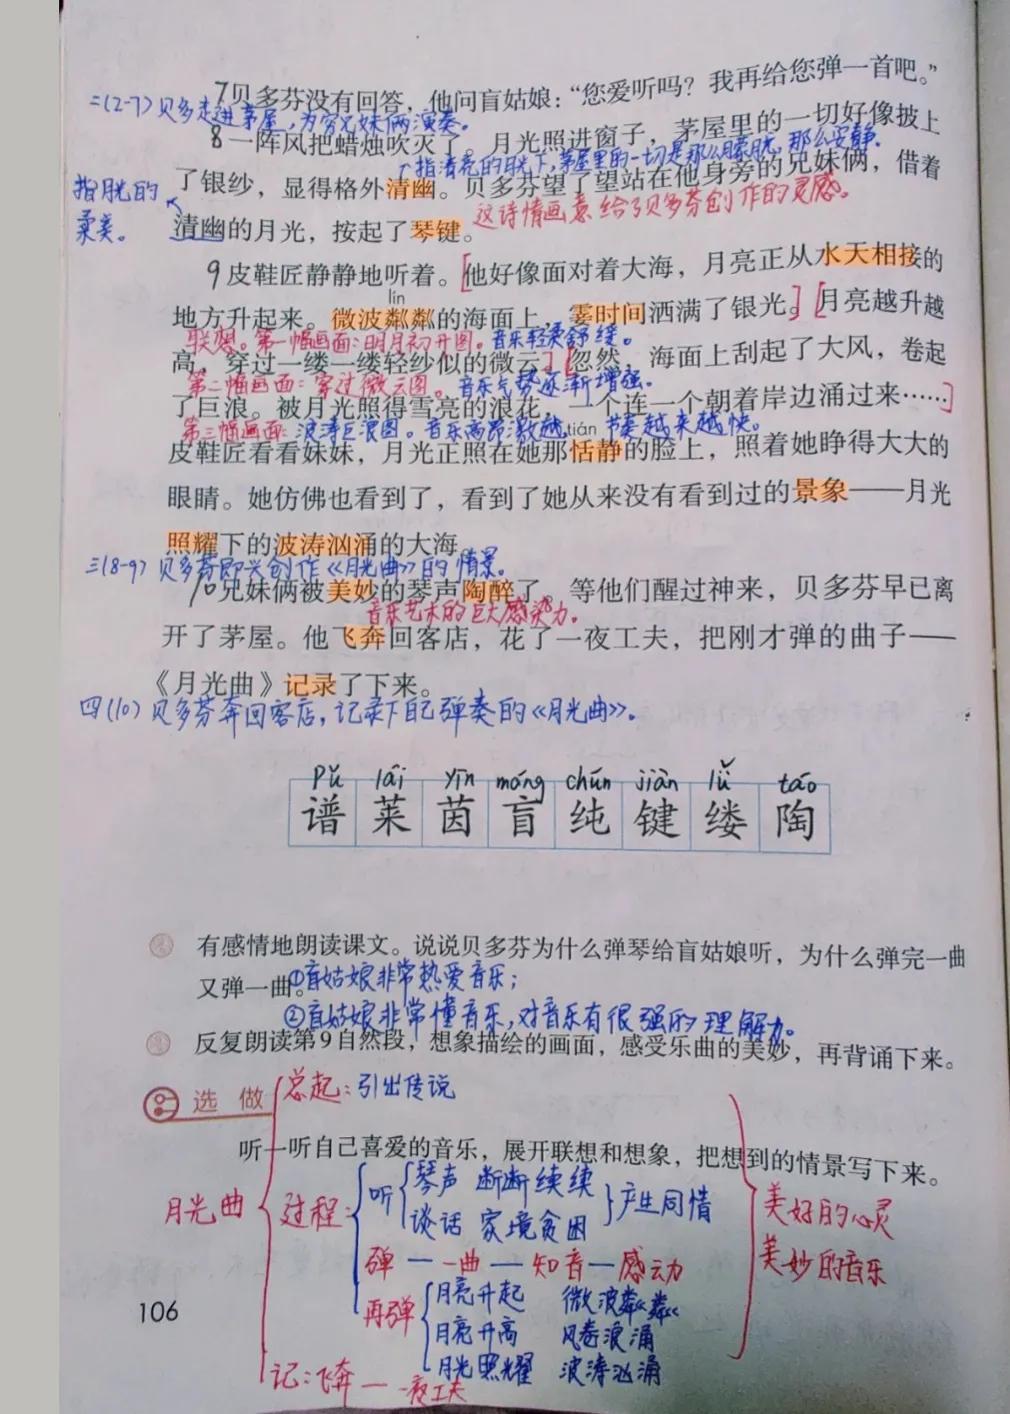 7贝多芬没有回答，他问盲姑娘：“您爱听吗？我再给您弹一首吧。”
二(2-7)贝多走进茅屋，为穷兄妹俩演奏。
8一阵风把蜡烛吹灭了。月光照进窗子，茅屋里的一切好像披上
指清亮的月光下，茅屋里的一切是那么朦胧，那么安静.
了银纱，显得格外清幽。贝多芬望了望站在他身旁的兄妹俩，借着
指月光的
柔美。
这诗情画意给了贝多芬创作的灵感。
清幽的月光，按起了琴键。
9皮鞋匠静静地听着。[他好像面对着大海，月亮正从水天相接的
lín
地方升起来。微波粼粼的海面上，霎时间洒满了银光。][月亮越升越
联想。第一幅画面：明月初升图。音乐轻柔舒缓。
高，穿过一缕一缕轻纱似的微云][忽然，海面上刮起了大风，卷起
第二幅画面：穿过微云图。音乐气势逐渐增强。
了巨浪。被月光照得雪亮的浪花，一个连一个朝着岸边涌过来……]
第三幅画面：波涛巨浪图。音乐高昂激越，节奏越来越快。
tián
皮鞋匠看看妹妹，月光正照在她那恬静的脸上，照着她睁得大大的
眼睛。她仿佛也看到了，看到了她从来没有看到过的景象——月光
照耀下的波涛汹涌的大海。
三(8-9)贝多芬即兴创作《月光曲》的情景。
10兄妹俩被美妙的琴声陶醉了。等他们醒过神来，贝多芬早已离
音乐艺术的巨大感染力。
开了茅屋。他飞奔回客店，花了一夜工夫，把刚才弹的曲子——
《月光曲》记录了下来。
四(10)贝多芬奔回客店，记录下自己弹奏的《月光曲》。
pǔ lái yīn máng chún jiàn lǚ táo
谱 莱 茵 盲 纯 键 缕 陶
有感情地朗读课文。说说贝多芬为什么弹琴给盲姑娘听，为什么弹完一曲
又弹一曲。
①盲姑娘非常热爱音乐；
②盲姑娘非常懂音乐，对音乐有很强的理解力。
反复朗读第9自然段，想象描绘的画面，感受乐曲的美妙，再背诵下来。
选做
总起：引出传说
听一听自己喜爱的音乐，展开联想和想象，把想到的情景写下来。
月光曲
过程：
听
琴声 断断续续
谈话 家境贫困
产生同情
弹——曲—知音—感动
再弹
月亮升起 微波粼粼
月亮升高 风卷浪涌
月光照耀 波涛汹涌
记：飞奔—一夜工夫
美好的心灵
美妙的音乐
106